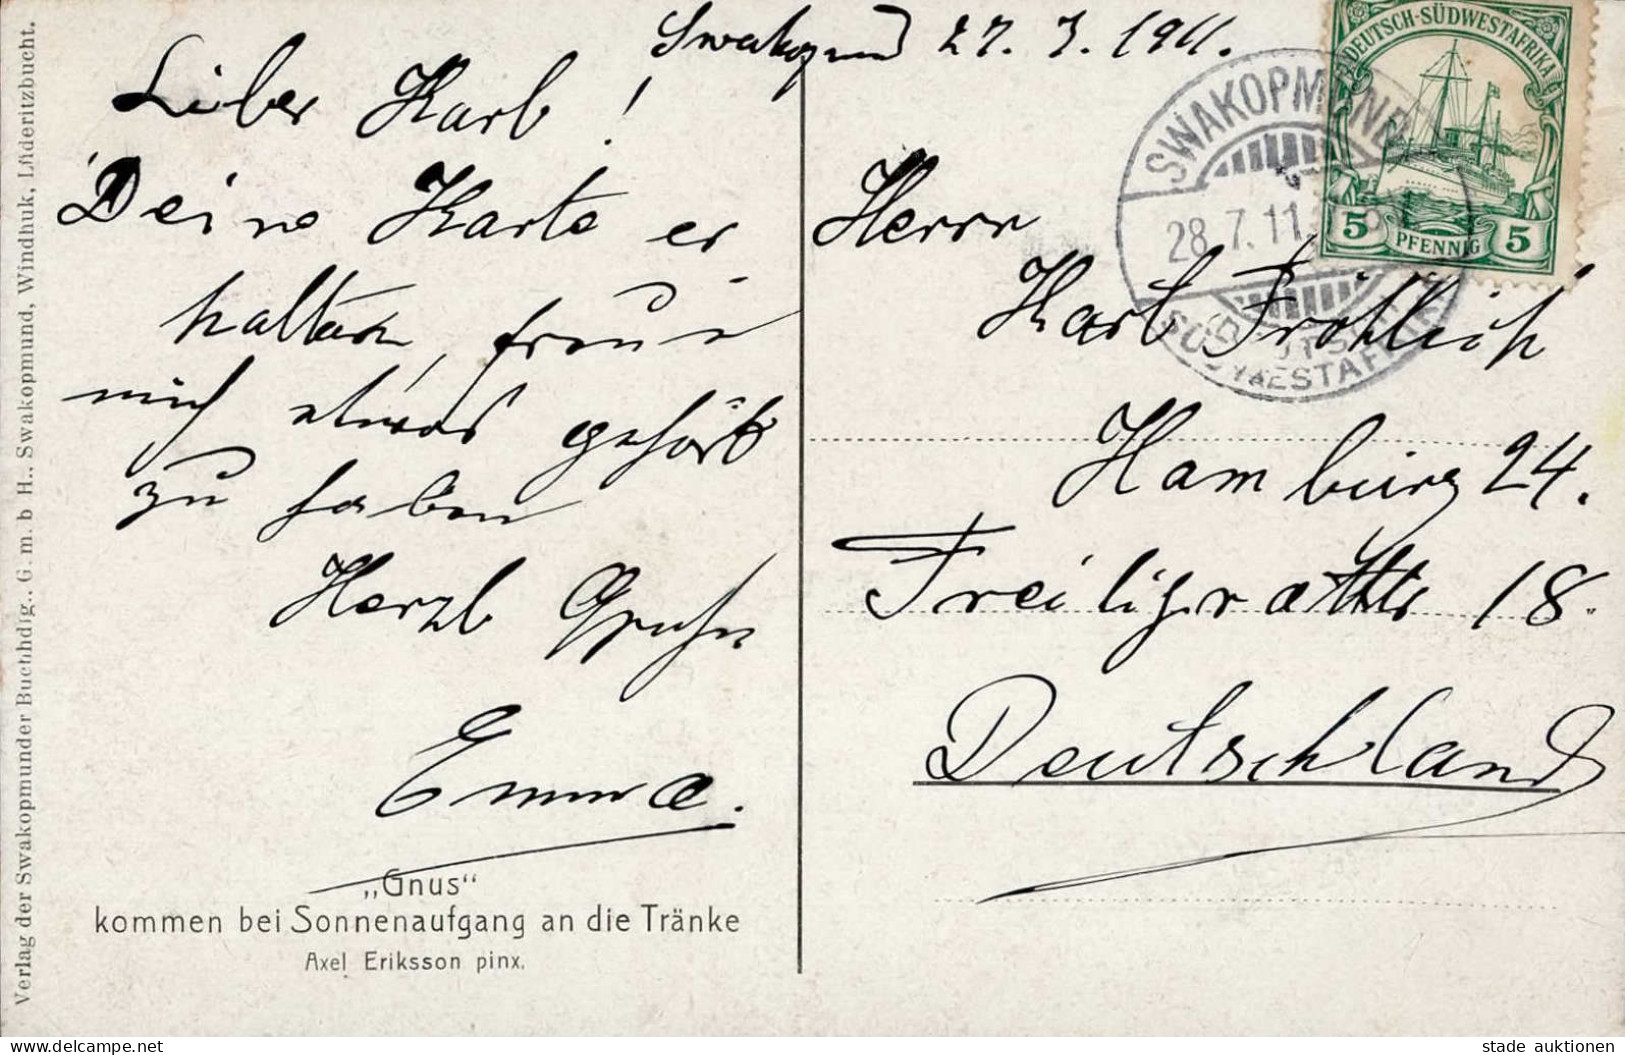 Swakopmund 27. 7. 1911.
Lieber Karl!
Deine Karte er-
halten, freue
mich etwas gehört
zu haben
Herzl Grüße
Emma.
„Gnus“
kommen bei Sonnenaufgang an die Tränke
Axel Eriksson pinx.
Verlag der Swakopmunder Buchhdlg.. G. m. b H.. Swakopmund, Windhuk, Lüderitzbucht.
DEUTSCH-SÜDWESTAFRIKA
5 PFENNIG 5
SWAKOPMUND
28.7.11.
DEUTSCH
SÜDWESTAFRIKA
Herrn
Karl Fröhlich
Hamburg 24.
Freiligrathstr 18.
Deutschland
stade auktionen
www.delcampe.net